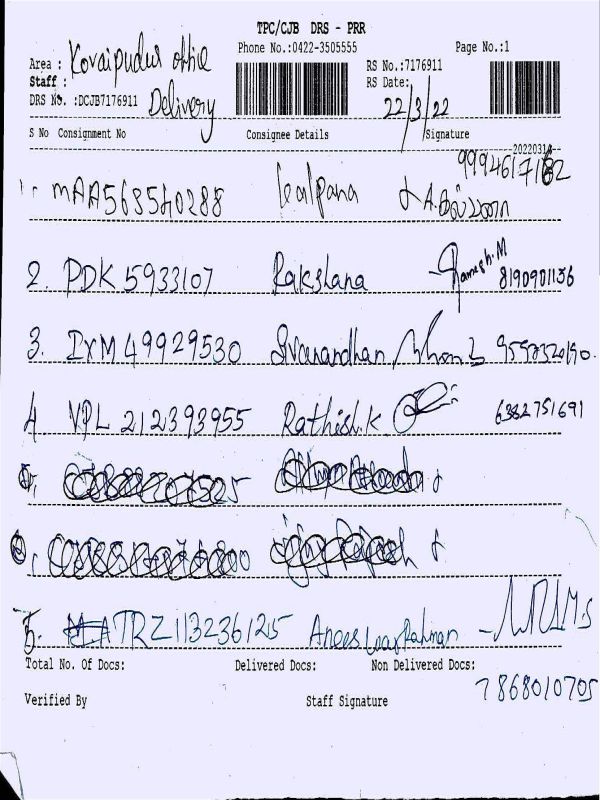 TPC/CJB DRS - PRR
Phone No.:0422-3505555 Page No.:1
Area : Kovaipudur office RS No.:7176911
Staff : RS Date:
DRS No. :DCJB7176911 Delivery 22/3/22
S No Consignment No Consignee Details Signature
202203
9994617182
1. MAA568540288 Kalpana A.கல்பனா
2. PDK 5933107 Rakshana Ramesh.M 8190901136
3. IXM 49929530 Sivanandhan 9558520190.
4 VPL 212393955 Rathish.K 6382751691
5. TRZ113236125 Anees
Total No. Of Docs: Delivered Docs: Non Delivered Docs:
7868010705
Verified By Staff Signature